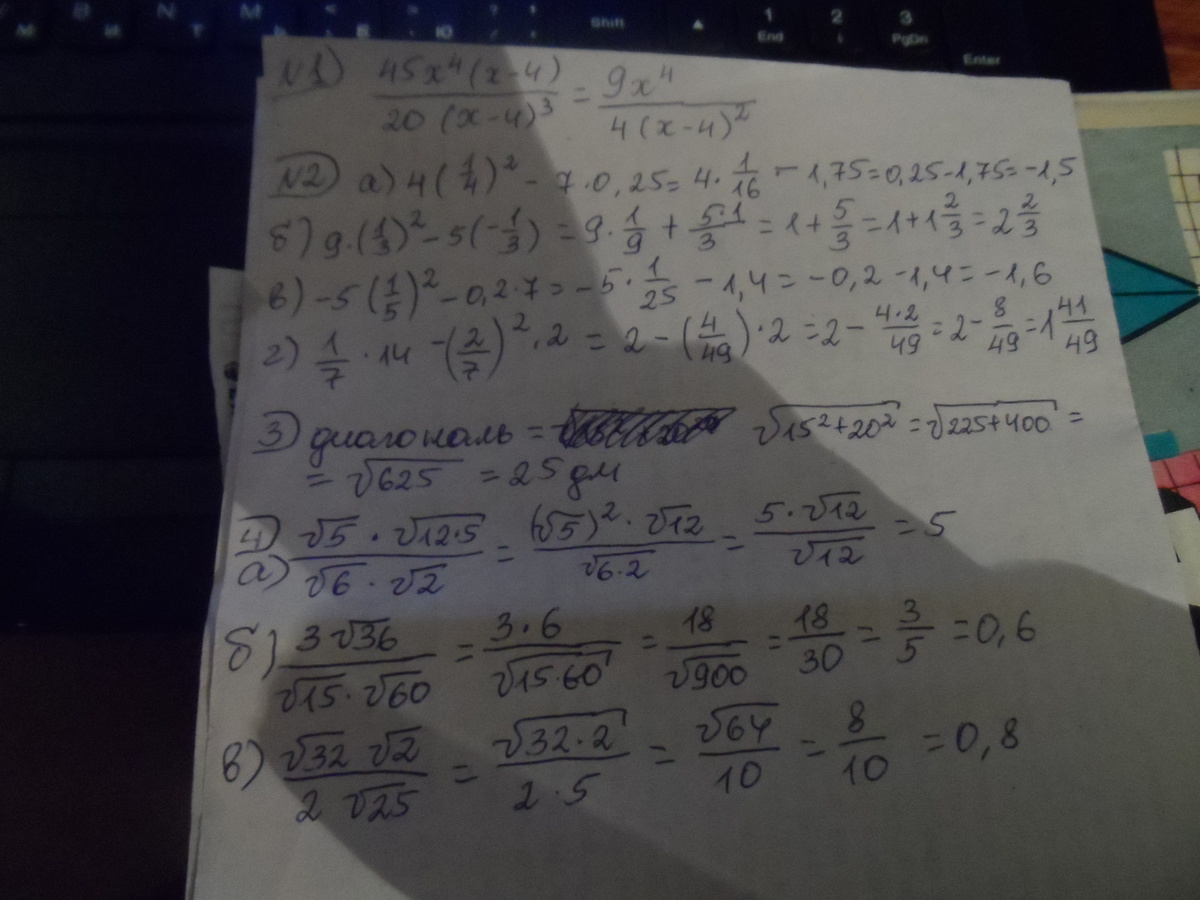 Shift 1 End 2 3 PgDn Enter
№1) 45x⁴(x-4) / 20(x-4)³ = 9x⁴ / 4(x-4)²
№2) а) 4(1/4)² - 7·0,25 = 4·1/16 - 1,75 = 0,25-1,75 = -1,5
б) 9·(1/3)² - 5(-1/3) = 9·1/9 + 5·1/3 = 1 + 5/3 = 1 + 1 2/3 = 2 2/3
в) -5(1/5)² - 0,2·7 = -5·1/25 - 1,4 = -0,2 - 1,4 = -1,6
г) 1/7 · 14 - (2/7)²·2 = 2 - (4/49)·2 = 2 - 4·2/49 = 2 - 8/49 = 1 41/49
3) диагональ = √15²+20² = √225+400 =
= √625 = 25 дм
4)
а) √5 · √12·5 / √6 · √2 = (√5)² · √12 / √6·2 = 5·√12 / √12 = 5
б) 3√36 / √15·√60 = 3·6 / √15·60 = 18 / √900 = 18/30 = 3/5 = 0,6
в) √32 √2 / 2 √25 = √32·2 / 2·5 = √64 / 10 = 8/10 = 0,8